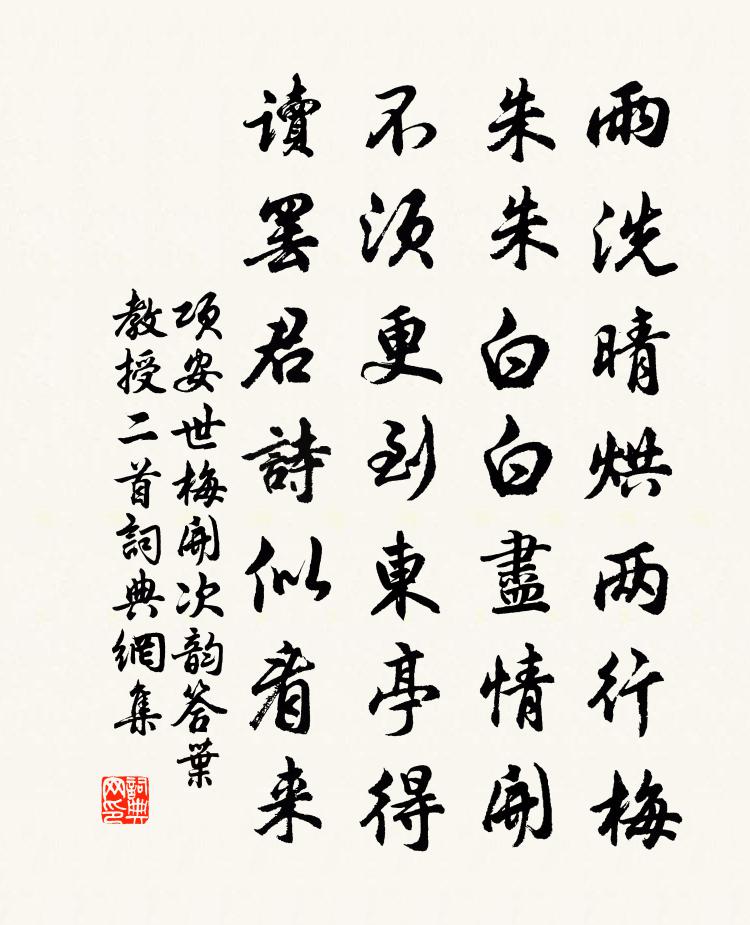 雨洗晴烘两行梅
朱朱白白盡情開
不須更到東亭得
讀罢君詩似看来
項安世梅開次韵答葉
教授二首詞典網集
詞典网印